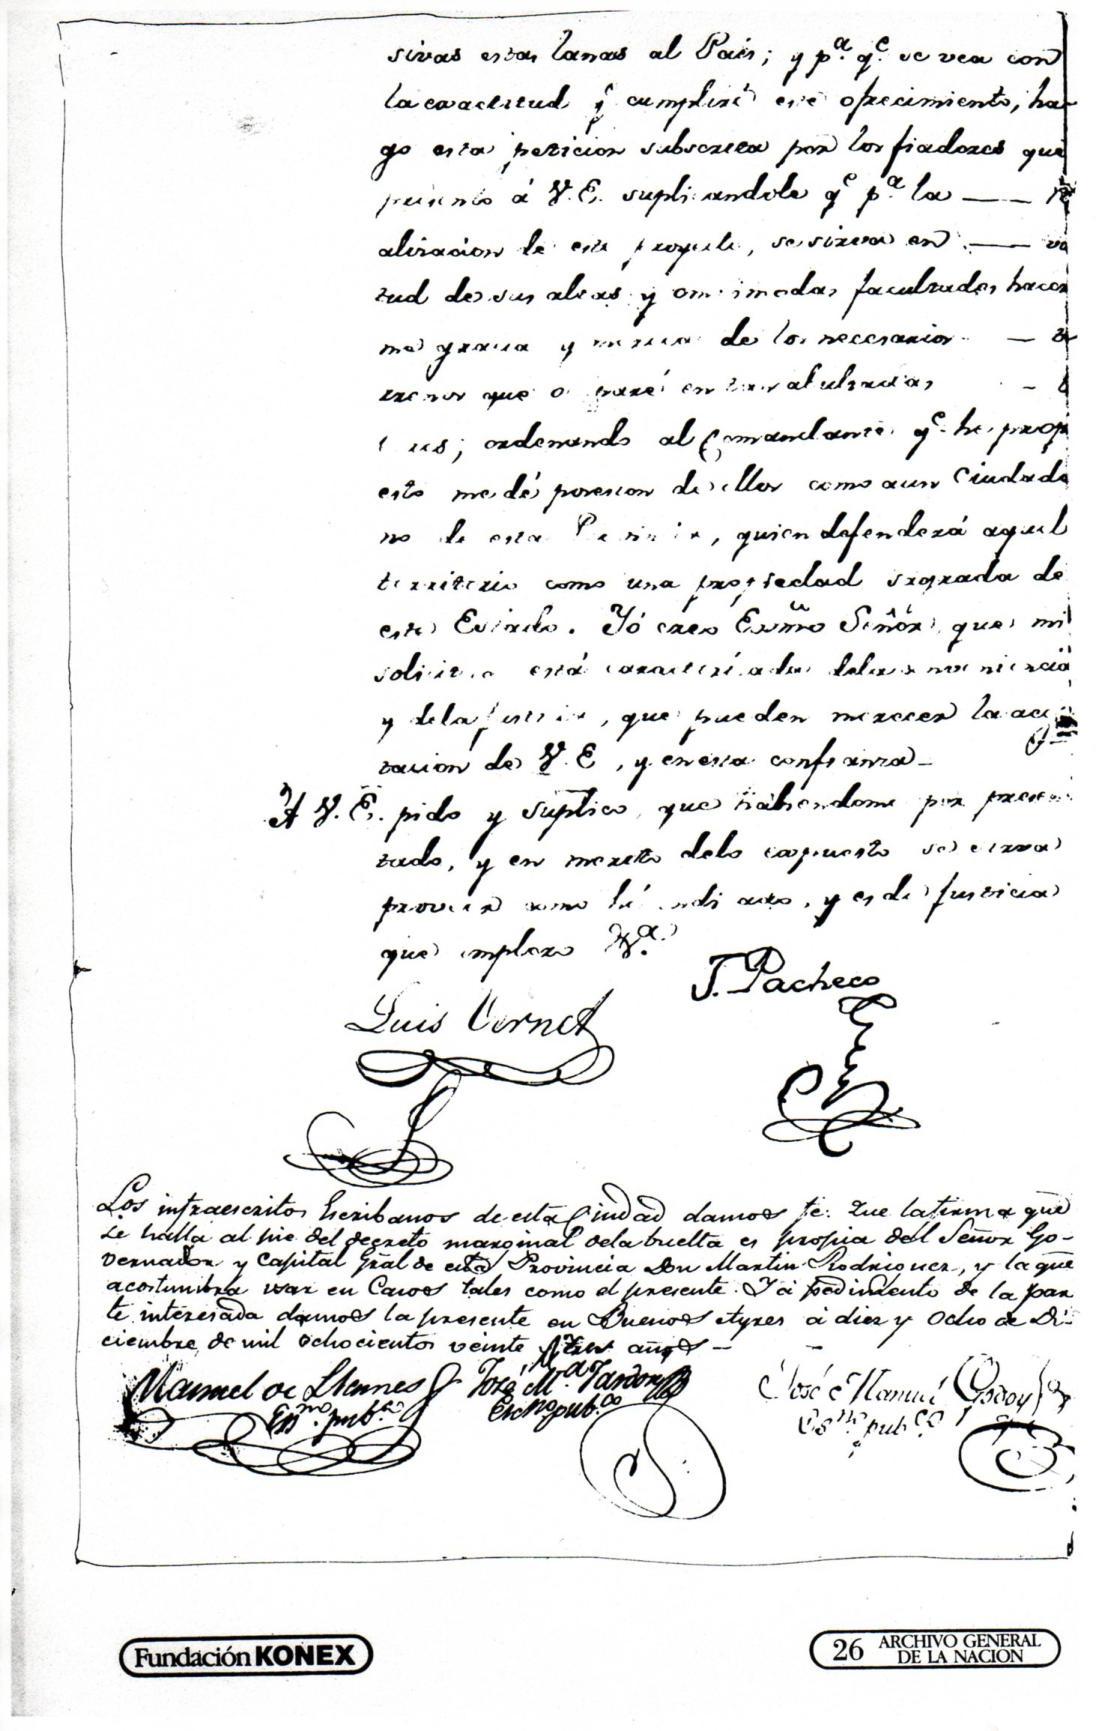 sivas estas lanas al Pais; y pª. qᵉ. se vea con
la exactitud q̃ cumpliré este ofrecimiento, ha-
go esta peticion subscrita por los fiadores que
presento á V. E. suplicandole qᵉ pª. la —
alizacion de este proyecto, se sirva en —
tud de sus altas y omnimodas facultades hacer
me gracia y merced de los necesarios —
trenos que ocuparé en
ordenando al Comandante qᵉ. he prop
esto me dé posesion de ellos como a un Ciudada
no de esta Provincia, quien defenderá aquel
territorio como una propiedad sagrada de
este Estado. Yó creo Exmo Señór que mi
solicitud está caracterizada de la conveniencia
y de la justicia, que pueden merecer la
tacion de V. E, y en esta confianza_
A V. E. pido y suplico, que habiendome por presen
tado, y en merito de lo expuesto se sirva
proveer como hé indicado, y es de justicia
que imploro Vª.
J. Pacheco
Luis Vernet
Los infraescritos Escribanos de esta Ciudad damos fe: Que la firma que
se halla al pie del decreto marginal de la buelta es propia del Señor Go-
vernador y Capital Gral de esta Provincia Don Martin Rodriguez, y la que
acostumbra usar en Casos tales como el presente. Y á pedimento de la par
te interesada damos la presente en Buenos Ayres á diez y Ocho de Di-
ciembre de mil ochocientos veinte y tres años —
Manuel de Llames
Esnº. pubᶜᵒ
José Mª. Jardon
Escnº pubᶜᵒ
José Manuel Godoy
Esnº pubᶜᵒ
Fundación KONEX
26 ARCHIVO GENERAL
DE LA NACION